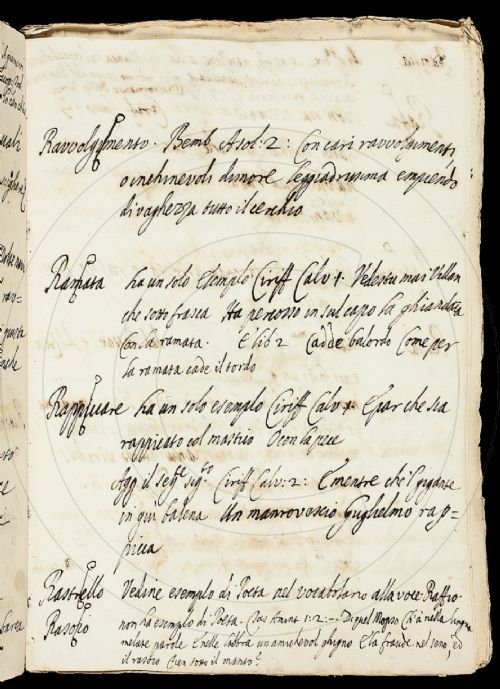 Ravvolgimento. Bemb. Asol: 2: Con cari ravvolgimenti,
o inchinevoli dimore leggiadrissima empiendo
di vaghezza tutto il cerchio
Ramata ha un solo esempio Ciriff Calv 1. Vedestu mai Villan
che sotto frasca Ha percosso in sul capo la ghiandaia
Con la ramata. E lib 2 Cadde balordo Come per
la ramata cade il tordo
Rappiccare ha un solo esempio Ciriff Calv 1. E par che sia
rappicato col mastrio O con la pece
Agg il segte sigto Ciriff Calv: 2: E mentre che 'l gigante
in qui balena Un manrovescio Guglielmo rap=
picca
Rastrello Vedine esempio di Poeta nel vocabolario alla voce Raffio
Rasoio non ha esempio di Poeta. Tas Amint 1: 2: Di quel Mopso Ch'à nella lingua
melate parole E nelle labbra un amichevol ghigno E la fraude nel seno, ed
il rasoio Tien sotto il manto.